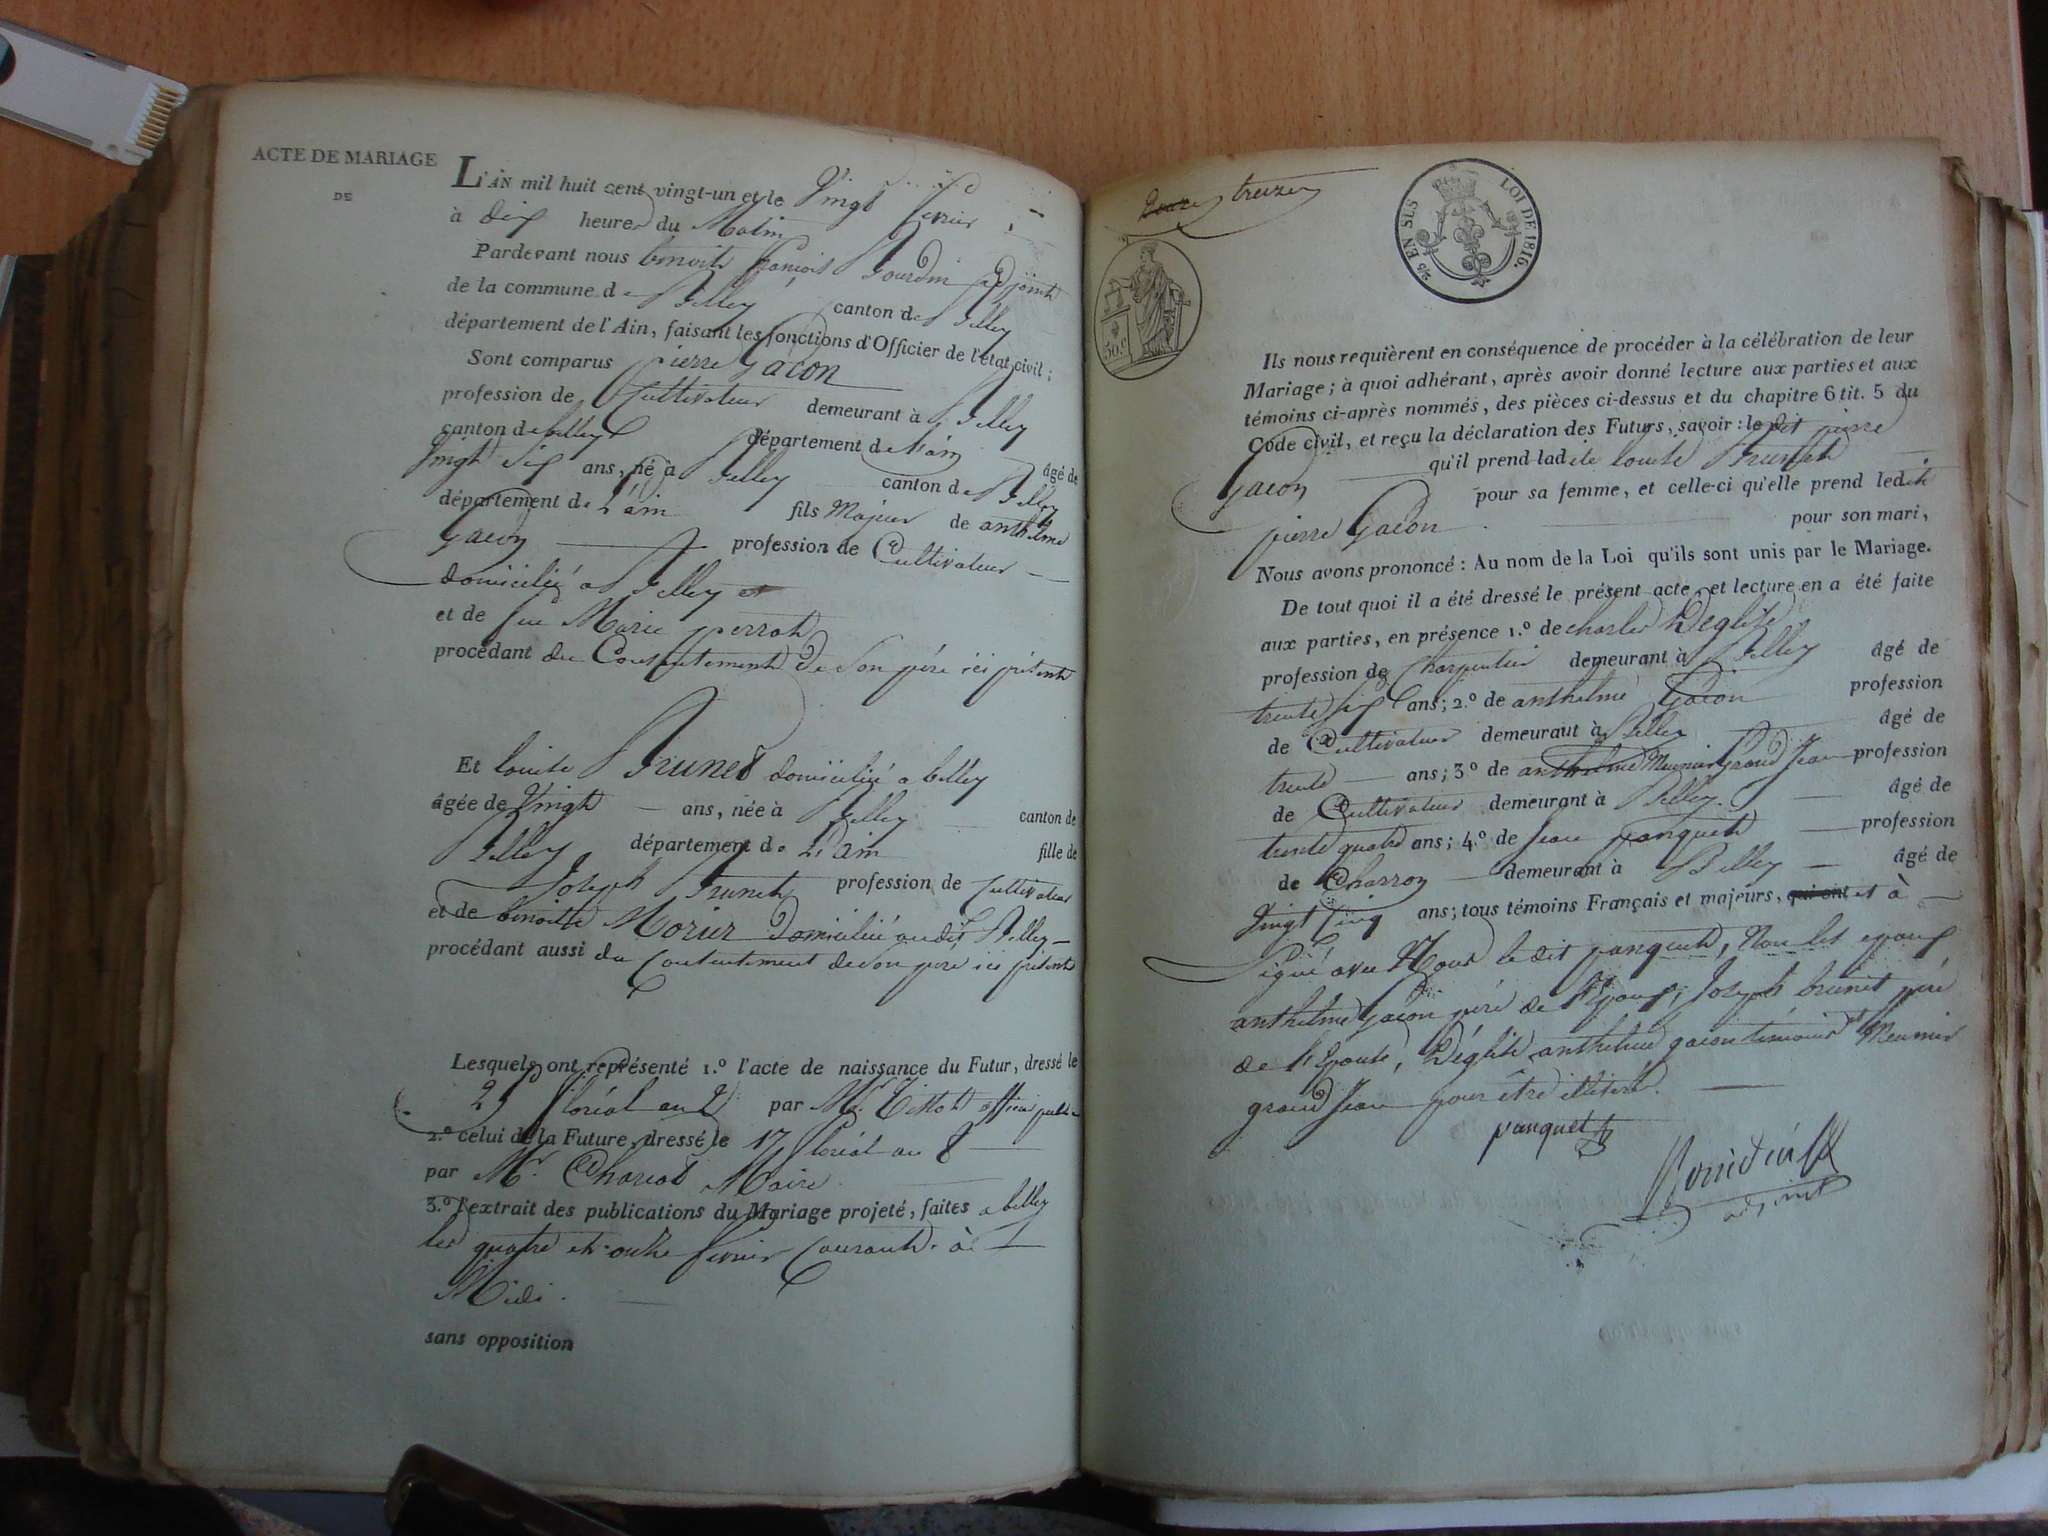 ACTE DE MARIAGE
DE
L'AN mil huit cent vingt-un et le Vingt fevrier
à dix heures du Matin
Pardevant nous benoite françois Bourdin adjoint
de la commune de Belley canton de Belley
département de l'Ain, faisant les fonctions d'Officier de l'état civil;
Sont comparus pierre Gacon
profession de Cultivateur demeurant à Belley
canton de belley département de l'ain âgé de
Vingt six ans, né à Belley canton de Belley
département de L'ain fils Majeur de anthelme
Gacon profession de Cultivateur
domicilié a Belley et
et de feue Marie perrot
procédant du Consentement de Son père ici présent
Et louise Brunet domiciliée a belley
âgée de Vingt ans, née à Belley canton de
Belley département de L'ain fille de
Joseph Brunet profession de Cultivateur
et de benoitte Morier domicilié audit Belley
procédant aussi du Consentement de son pere ici présent
Lesquels ont représenté 1.º l'acte de naissance du Futur, dressé le
25 floréal an 2 par Mr. officier public
2.º celui de la Future, dressé le 17 floréal an 8
par Mr. Chariot Maire
3.º l'extrait des publications du Mariage projeté, faites a belley
les quatre et onze fevrier Courant à
Midi.
sans opposition
douze treize
25 EN SUS LOI DE 1816.
50 c
Ils nous requièrent en conséquence de procéder à la célébration de leur
Mariage; à quoi adhérant, après avoir donné lecture aux parties et aux
témoins ci-après nommés, des pièces ci-dessus et du chapitre 6 tit. 5 du
Code civil, et reçu la déclaration des Futurs, savoir: le dit pierre
Gacon qu'il prend ladite louise Brunet
pour sa femme, et celle-ci qu'elle prend ledit
pierre Gacon pour son mari,
Nous avons prononcé: Au nom de la Loi qu'ils sont unis par le Mariage.
De tout quoi il a été dressé le présent acte, et lecture en a été faite
aux parties, en présence 1.º de charles Déglise
profession de Charpentier demeurant à Belley âgé de
trente six ans; 2.º de anthelme Gacon profession
de Cultivateur demeurant à Belley âgé de
trente ans; 3º de anthelme Meunier Grand Jean profession
de Cultivateur demeurant à Belley. âgé de
trente quatre ans; 4.º de Jean panquet profession
de Charron demeurant à Belley âgé de
Vingt Cinq ans; tous témoins Français et majeurs, qui ont et à
Signé avec Nous le dit panquet, Non les epoux
anthelme Gacon père de l'Epoux, Joseph brunet père
de l'Epouse, Déglise anthelme gacon témoins et Meunier
grand Jean pour être illiteré.
panquet
Bourdin
adjoint